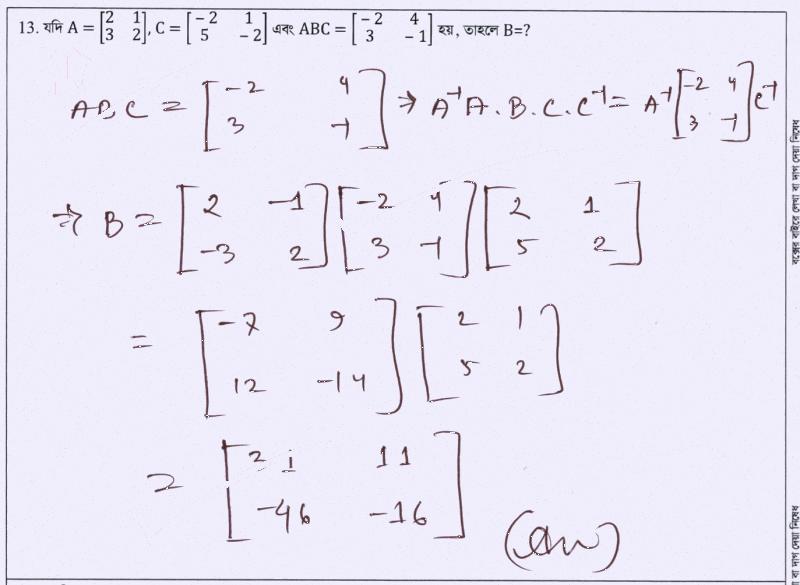 13. যদি A = [2 1; 3 2], C = [−2 1; 5 −2] এবং ABC = [−2 4; 3 −1] হয়, তাহলে B=?
ABC = [-2 4; 3 -1] ⇒ A⁻¹A.B.C.C⁻¹ = A⁻¹[-2 4; 3 -1]C⁻¹
⇒ B = [2 -1; -3 2] [-2 4; 3 -1] [2 1; 5 2]
= [-7 9; 12 -14] [2 1; 5 2]
= [21 11; -46 -16]
(Ans)
বক্সের বাইরে লেখা বা দাগ দেয়া নিষেধ
বা দাগ দেয়া নিষেধ